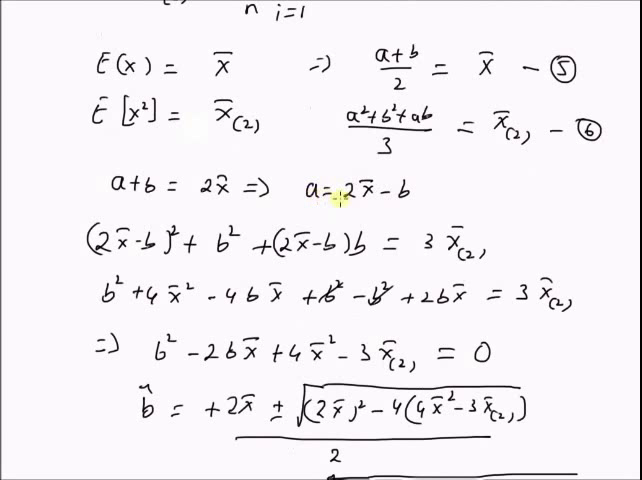 n i=1
E(x) = x̄ => (a+b)/2 = x̄ — ⑤
E[x²] = x̄₍₂₎ (a²+b²+ab)/3 = x̄₍₂₎ — ⑥
a+b = 2x̄ => a = 2x̄ - b
(2x̄-b)² + b² + (2x̄-b)b = 3x̄₍₂₎
b² + 4x̄² - 4bx̄ + b² - b² + 2bx̄ = 3x̄₍₂₎
=> b² - 2bx̄ + 4x̄² - 3x̄₍₂₎ = 0
b̂ = +2x̄ ± √((2x̄)² - 4(4x̄² - 3x̄₍₂₎)
2